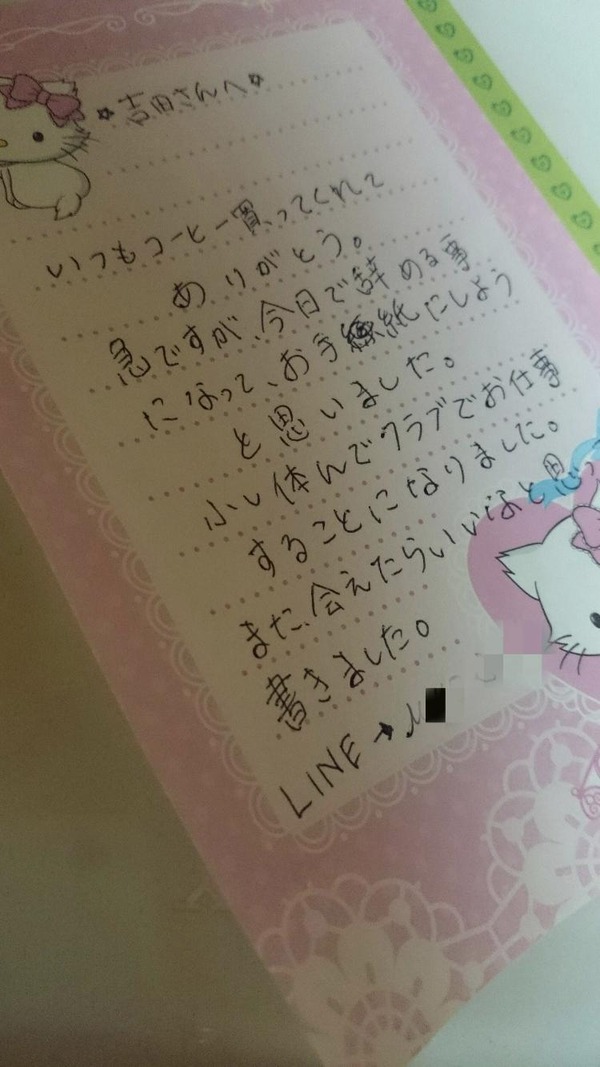 ☆吉田さんへ☆
いつもコーヒー買ってくれて
ありがとう。
急ですが、今日で辞める事
になって、お手紙にしよう
と思いました。
少し休んでクラブでお仕事
することになりました。
また、会えたらいいなと思っ
書きました。
LINE→